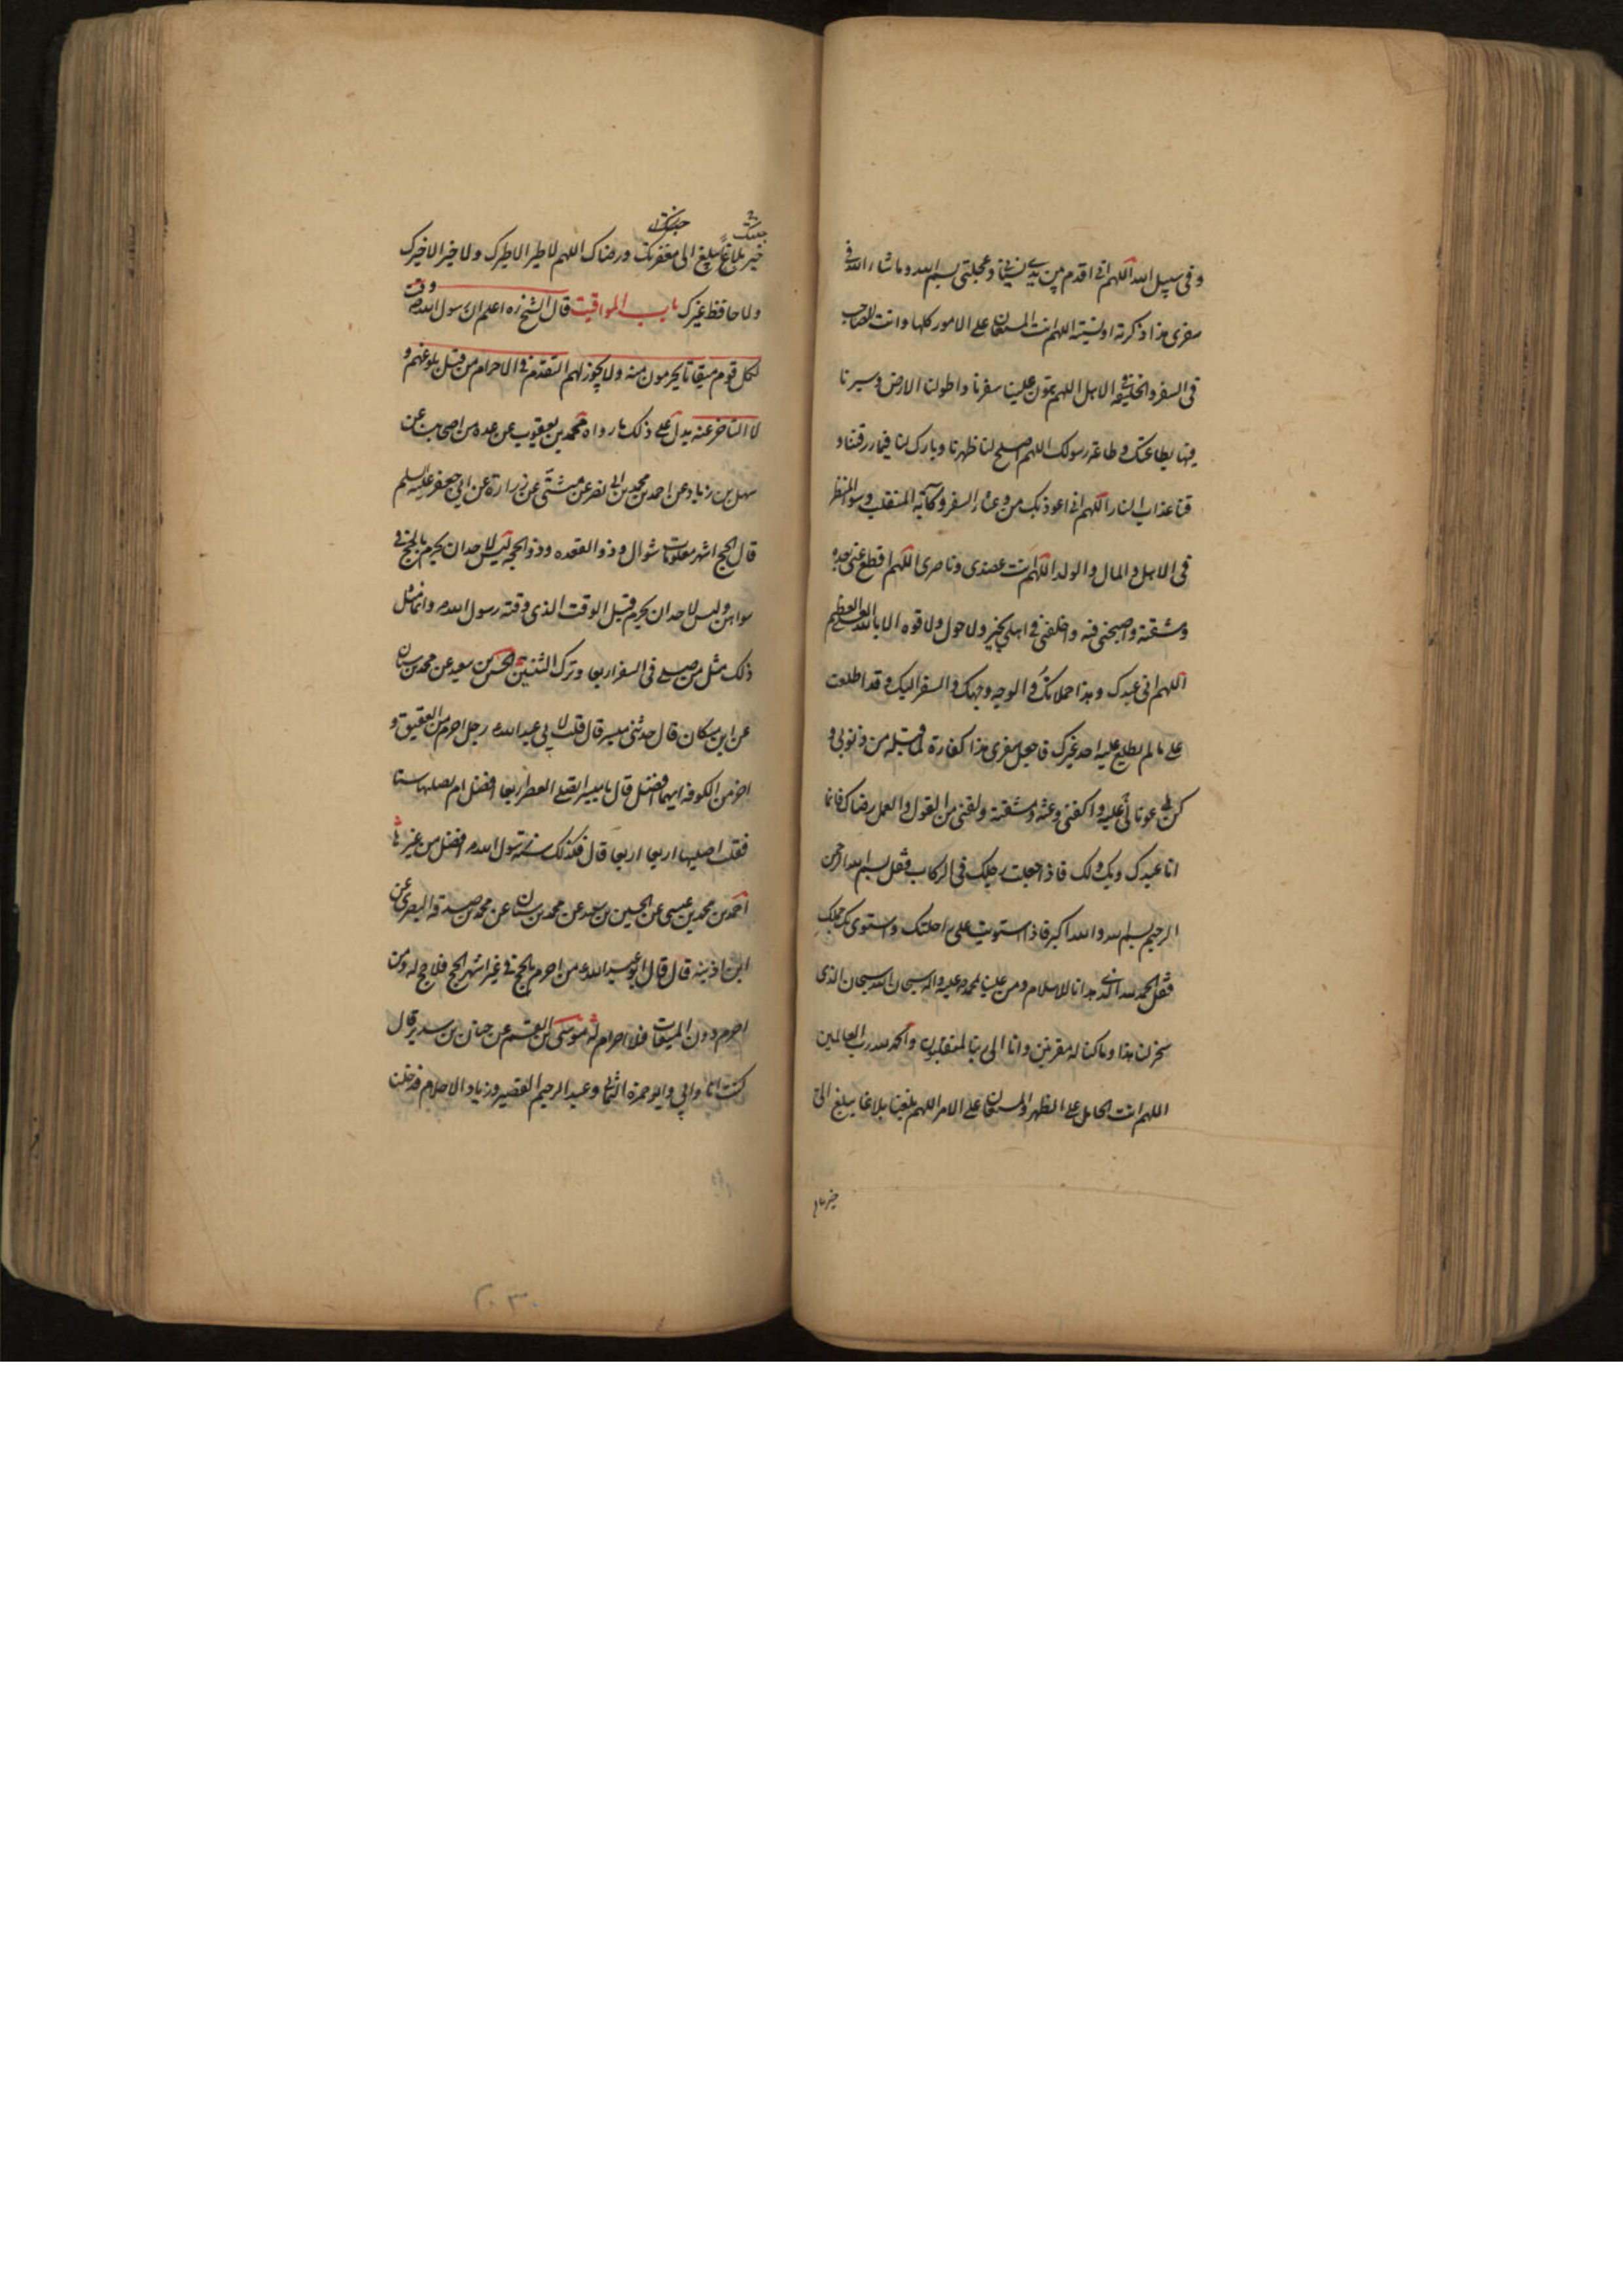 وفي سبيل الله اللهم اني اقدم بين يدي نسياني وعجلتي بسم الله وما شاء الله في
سفري هذا ذكرته او نسيته اللهم انت المستعان على الامور كلها وانت الصاحب
في السفر والخليفة في الاهل اللهم هون علينا سفرنا واطو لنا الارض وسيرنا
فيها بطاعتك وطاعة رسولك اللهم اصلح لنا ظهرنا وبارك لنا فيما رزقتنا و
قنا عذاب النار اللهم اني اعوذ بك من وعثاء السفر وكآبة المنقلب وسوء المنظر
في الاهل والمال والولد اللهم انت عضدي وناصري اللهم اقطع عني بعده
ومشقته واصحبني فيه واخلفني في اهلي بخير ولا حول ولا قوه الا بالله العلي العظيم
اللهم اني عبدك وهذا حملانك والوجه وجهك والسفر اليك وقد اطلعت
على ما لم يطلع عليه احد غيرك فاجعل سفري هذا كفارة لما قبله من ذنوبي و
كن لي عونا عليه واكفني وعثه ومشقته ولقني من القول والعمل رضاك فانما
انا عبدك وبك ولك فاذا جعلت رجلك في الركاب فقل بسم الله الرحمن
الرحيم بسم الله والله اكبر فاذا استويت على راحلتك واستوى بك محملك
فقل الحمد لله الذي هدانا للاسلام ومن علينا بمحمد ص عليه واله سبحان الله سبحان الذي
سخر لنا هذا وما كنا له مقرنين وانا الى ربنا لمنقلبون والحمد لله رب العالمين
اللهم انت الحامل على الظهر والمستعان على الامر اللهم بلغنا بلاغا يبلغ الى
خير بلاغا
خير بلاغا يبلغ الى مغفرتك ورضاك اللهم لا طير الا طيرك ولا خير الا خيرك
ولا حافظ غيرك باب المواقيت قال الشيخ ره اعلم ان رسول الله ص وقت
لكل قوم ميقاتا يحرمون منه ولا يجوز لهم التقدم في الاحرام من قبل بلوغهم و
لا التاخر عنه يدل على ذلك ما رواه محمد بن يعقوب عن عده من اصحابنا عن
سهل بن زياد عن احمد بن محمد بن ابي نصر عن مثنى عن زرارة عن ابي جعفر عليه السلم
قال الحج اشهر معلومات شوال وذو القعده وذو الحجه ليس لاحد ان يحرم بالحج في
سواهن وليس لاحد ان يحرم قبل الوقت الذي وقته رسول الله ص وانما مثل
ذلك مثل من صلى في السفر اربعا وترك الثنتين الحسين بن سعيد عن محمد بن سنان
عن ابن مسكان قال حدثني ميسر قال قلت لابي عبد الله ع رجل احرم من العقيق و
اخر من الكوفه ايهما افضل قال يا ميسر اتصلي العصر اربعا افضل ام تصليها ستا
فقلت اصليها اربعا اربعا قال فكذلك سنة رسول الله ص افضل من غيرها
احمد بن محمد بن عيسى عن الحسين بن سعيد عن محمد بن سنان عن محمد بن صدقه البصري عن
ابن اذينه قال قال ابو عبد الله ع من احرم بالحج في غير اشهر الحج فلا حج له ومن
احرم دون الميقات فلا احرام له موسى بن القسم عن حنان بن سدير قال
كنت انا وابي وابو حمزه الثمالي وعبد الرحيم القصير وزياد الاحلام فدخلنا